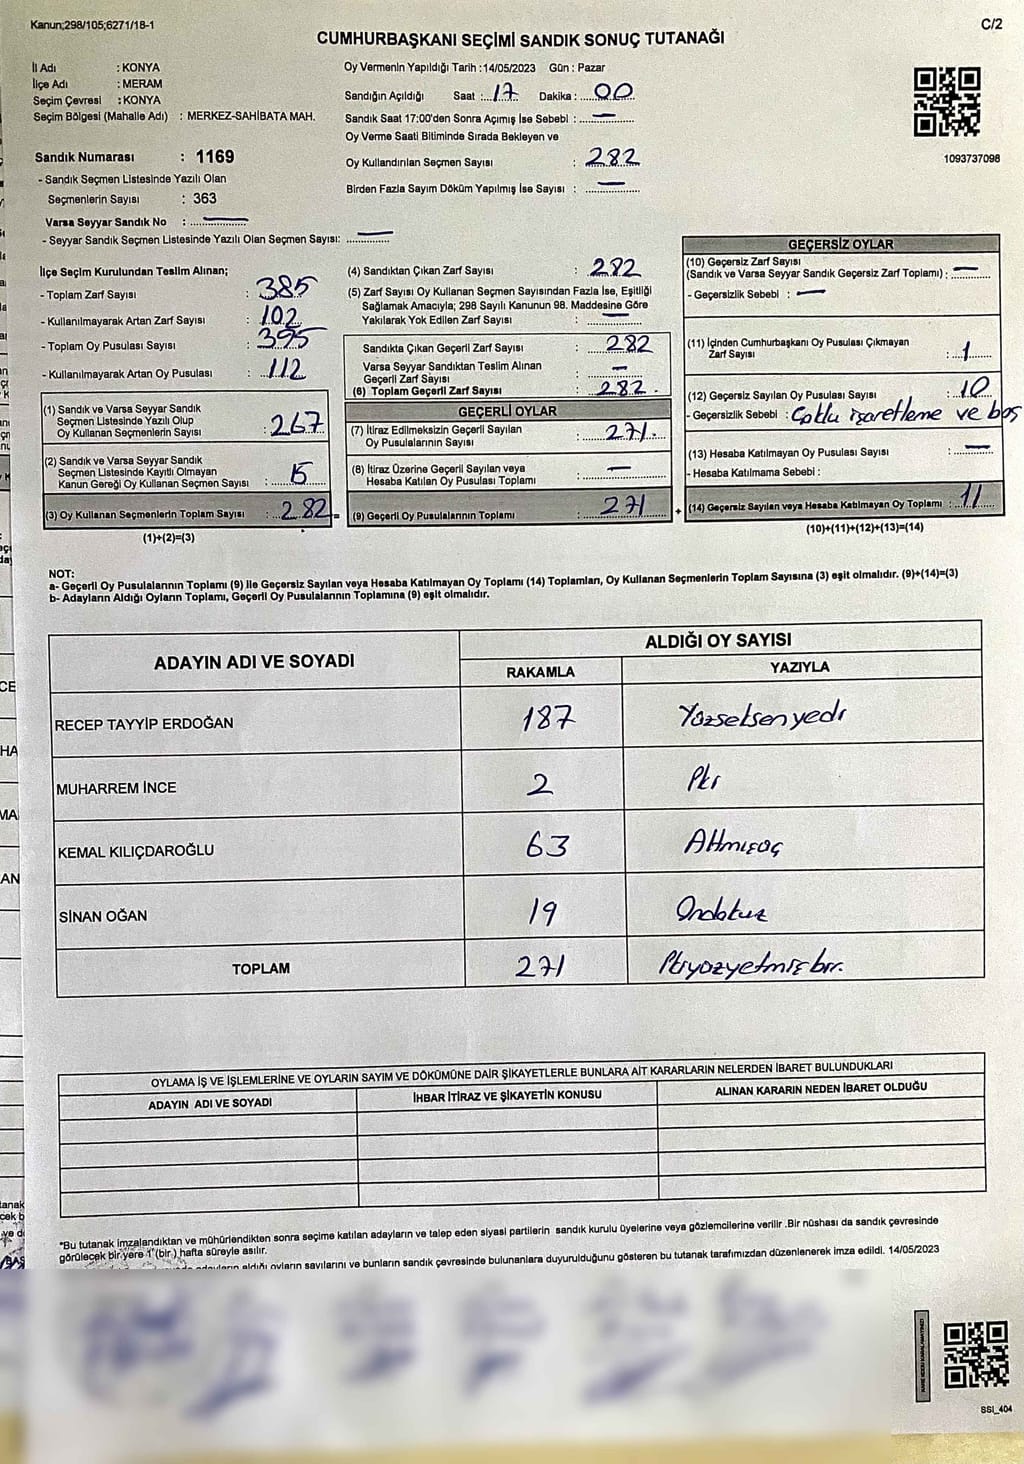 Kanun;298/105;6271/18-1
C/2
CUMHURBAŞKANI SEÇİMİ SANDIK SONUÇ TUTANAĞI
İl Adı : KONYA
İlçe Adı : MERAM
Seçim Çevresi : KONYA
Seçim Bölgesi (Mahalle Adı) : MERKEZ-SAHİBATA MAH.
Sandık Numarası : 1169
- Sandık Seçmen Listesinde Yazılı Olan
Seçmenlerin Sayısı : 363
Varsa Seyyar Sandık No : —
- Seyyar Sandık Seçmen Listesinde Yazılı Olan Seçmen Sayısı: —
Oy Vermenin Yapıldığı Tarih :14/05/2023 Gün : Pazar
Sandığın Açıldığı Saat : 17 Dakika : 00
Sandık Saat 17:00'den Sonra Açımış İse Sebebi : —
Oy Verme Saati Bitiminde Sırada Bekleyen ve
Oy Kullandırılan Seçmen Sayısı : 282
Birden Fazla Sayım Döküm Yapılmış İse Sayısı : —
1093737098
İlçe Seçim Kurulundan Teslim Alınan;
- Toplam Zarf Sayısı : 385
- Kullanılmayarak Artan Zarf Sayısı : 102
- Toplam Oy Pusulası Sayısı : 395
- Kullanılmayarak Artan Oy Pusulası : 112
(1) Sandık ve Varsa Seyyar Sandık
Seçmen Listesinde Yazılı Olup
Oy Kullanan Seçmenlerin Sayısı : 267
(2) Sandık ve Varsa Seyyar Sandık
Seçmen Listesinde Kayıtlı Olmayan
Kanun Gereği Oy Kullanan Seçmen Sayısı : 15
(3) Oy Kullanan Seçmenlerin Toplam Sayısı : 282 =
(1)+(2)=(3)
(4) Sandıktan Çıkan Zarf Sayısı : 282
(5) Zarf Sayısı Oy Kullanan Seçmen Sayısından Fazla İse, Eşitliği
Sağlamak Amacıyla; 298 Sayılı Kanunun 98. Maddesine Göre
Yakılarak Yok Edilen Zarf Sayısı : —
Sandıkta Çıkan Geçerli Zarf Sayısı : 282
Varsa Seyyar Sandıktan Teslim Alınan
Geçerli Zarf Sayısı : —
(6) Toplam Geçerli Zarf Sayısı : 282.
GEÇERLİ OYLAR
(7) İtiraz Edilmeksizin Geçerli Sayılan
Oy Pusulalarının Sayısı : 271.
(8) İtiraz Üzerine Geçerli Sayılan veya
Hesaba Katılan Oy Pusulası Toplamı : —
(9) Geçerli Oy Pusulalarının Toplamı : 271 +
GEÇERSİZ OYLAR
(10) Geçersiz Zarf Sayısı
(Sandık ve Varsa Seyyar Sandık Geçersiz Zarf Toplamı) : —
- Geçersizlik Sebebi : —
(11) İçinden Cumhurbaşkanı Oy Pusulası Çıkmayan
Zarf Sayısı : 1
(12) Geçersiz Sayılan Oy Pusulası Sayısı : 10
- Geçersizlik Sebebi : Çoklu işaretleme ve boş
(13) Hesaba Katılmayan Oy Pusulası Sayısı : —
- Hesaba Katılmama Sebebi :
(14) Geçersiz Sayılan veya Hesaba Katılmayan Oy Toplamı : 11
(10)+(11)+(12)+(13)=(14)
NOT:
a- Geçerli Oy Pusulalarının Toplamı (9) ile Geçersiz Sayılan veya Hesaba Katılmayan Oy Toplamı (14) Toplamları, Oy Kullanan Seçmenlerin Toplam Sayısına (3) eşit olmalıdır. (9)+(14)=(3)
b- Adayların Aldığı Oyların Toplamı, Geçerli Oy Pusulalarının Toplamına (9) eşit olmalıdır.
ADAYIN ADI VE SOYADI
ALDIĞI OY SAYISI
RAKAMLA YAZIYLA
RECEP TAYYİP ERDOĞAN 187 Yüzseksenyedi
MUHARREM İNCE 2 İki
KEMAL KILIÇDAROĞLU 63 Altmışüç
SİNAN OĞAN 19 Ondokuz
TOPLAM 271 İkiyüzyetmişbir.
OYLAMA İŞ VE İŞLEMLERİNE VE OYLARIN SAYIM VE DÖKÜMÜNE DAİR ŞİKAYETLERLE BUNLARA AİT KARARLARIN NELERDEN İBARET BULUNDUKLARI
ADAYIN ADI VE SOYADI İHBAR İTİRAZ VE ŞİKAYETİN KONUSU ALINAN KARARIN NEDEN İBARET OLDUĞU
*Bu tutanak imzalandıktan ve mühürlendikten sonra seçime katılan adayların ve talep eden siyasi partilerin sandık kurulu üyelerine veya gözlemcilerine verilir .Bir nüshası da sandık çevresinde
görülecek bir yere 1 (bir ) hafta süreyle asılır.
aldığı oyların sayılarını ve bunların sandık çevresinde bulunanlara duyurulduğunu gösteren bu tutanak tarafımızdan düzenlenerek imza edildi. 14/05/2023
SSI_404